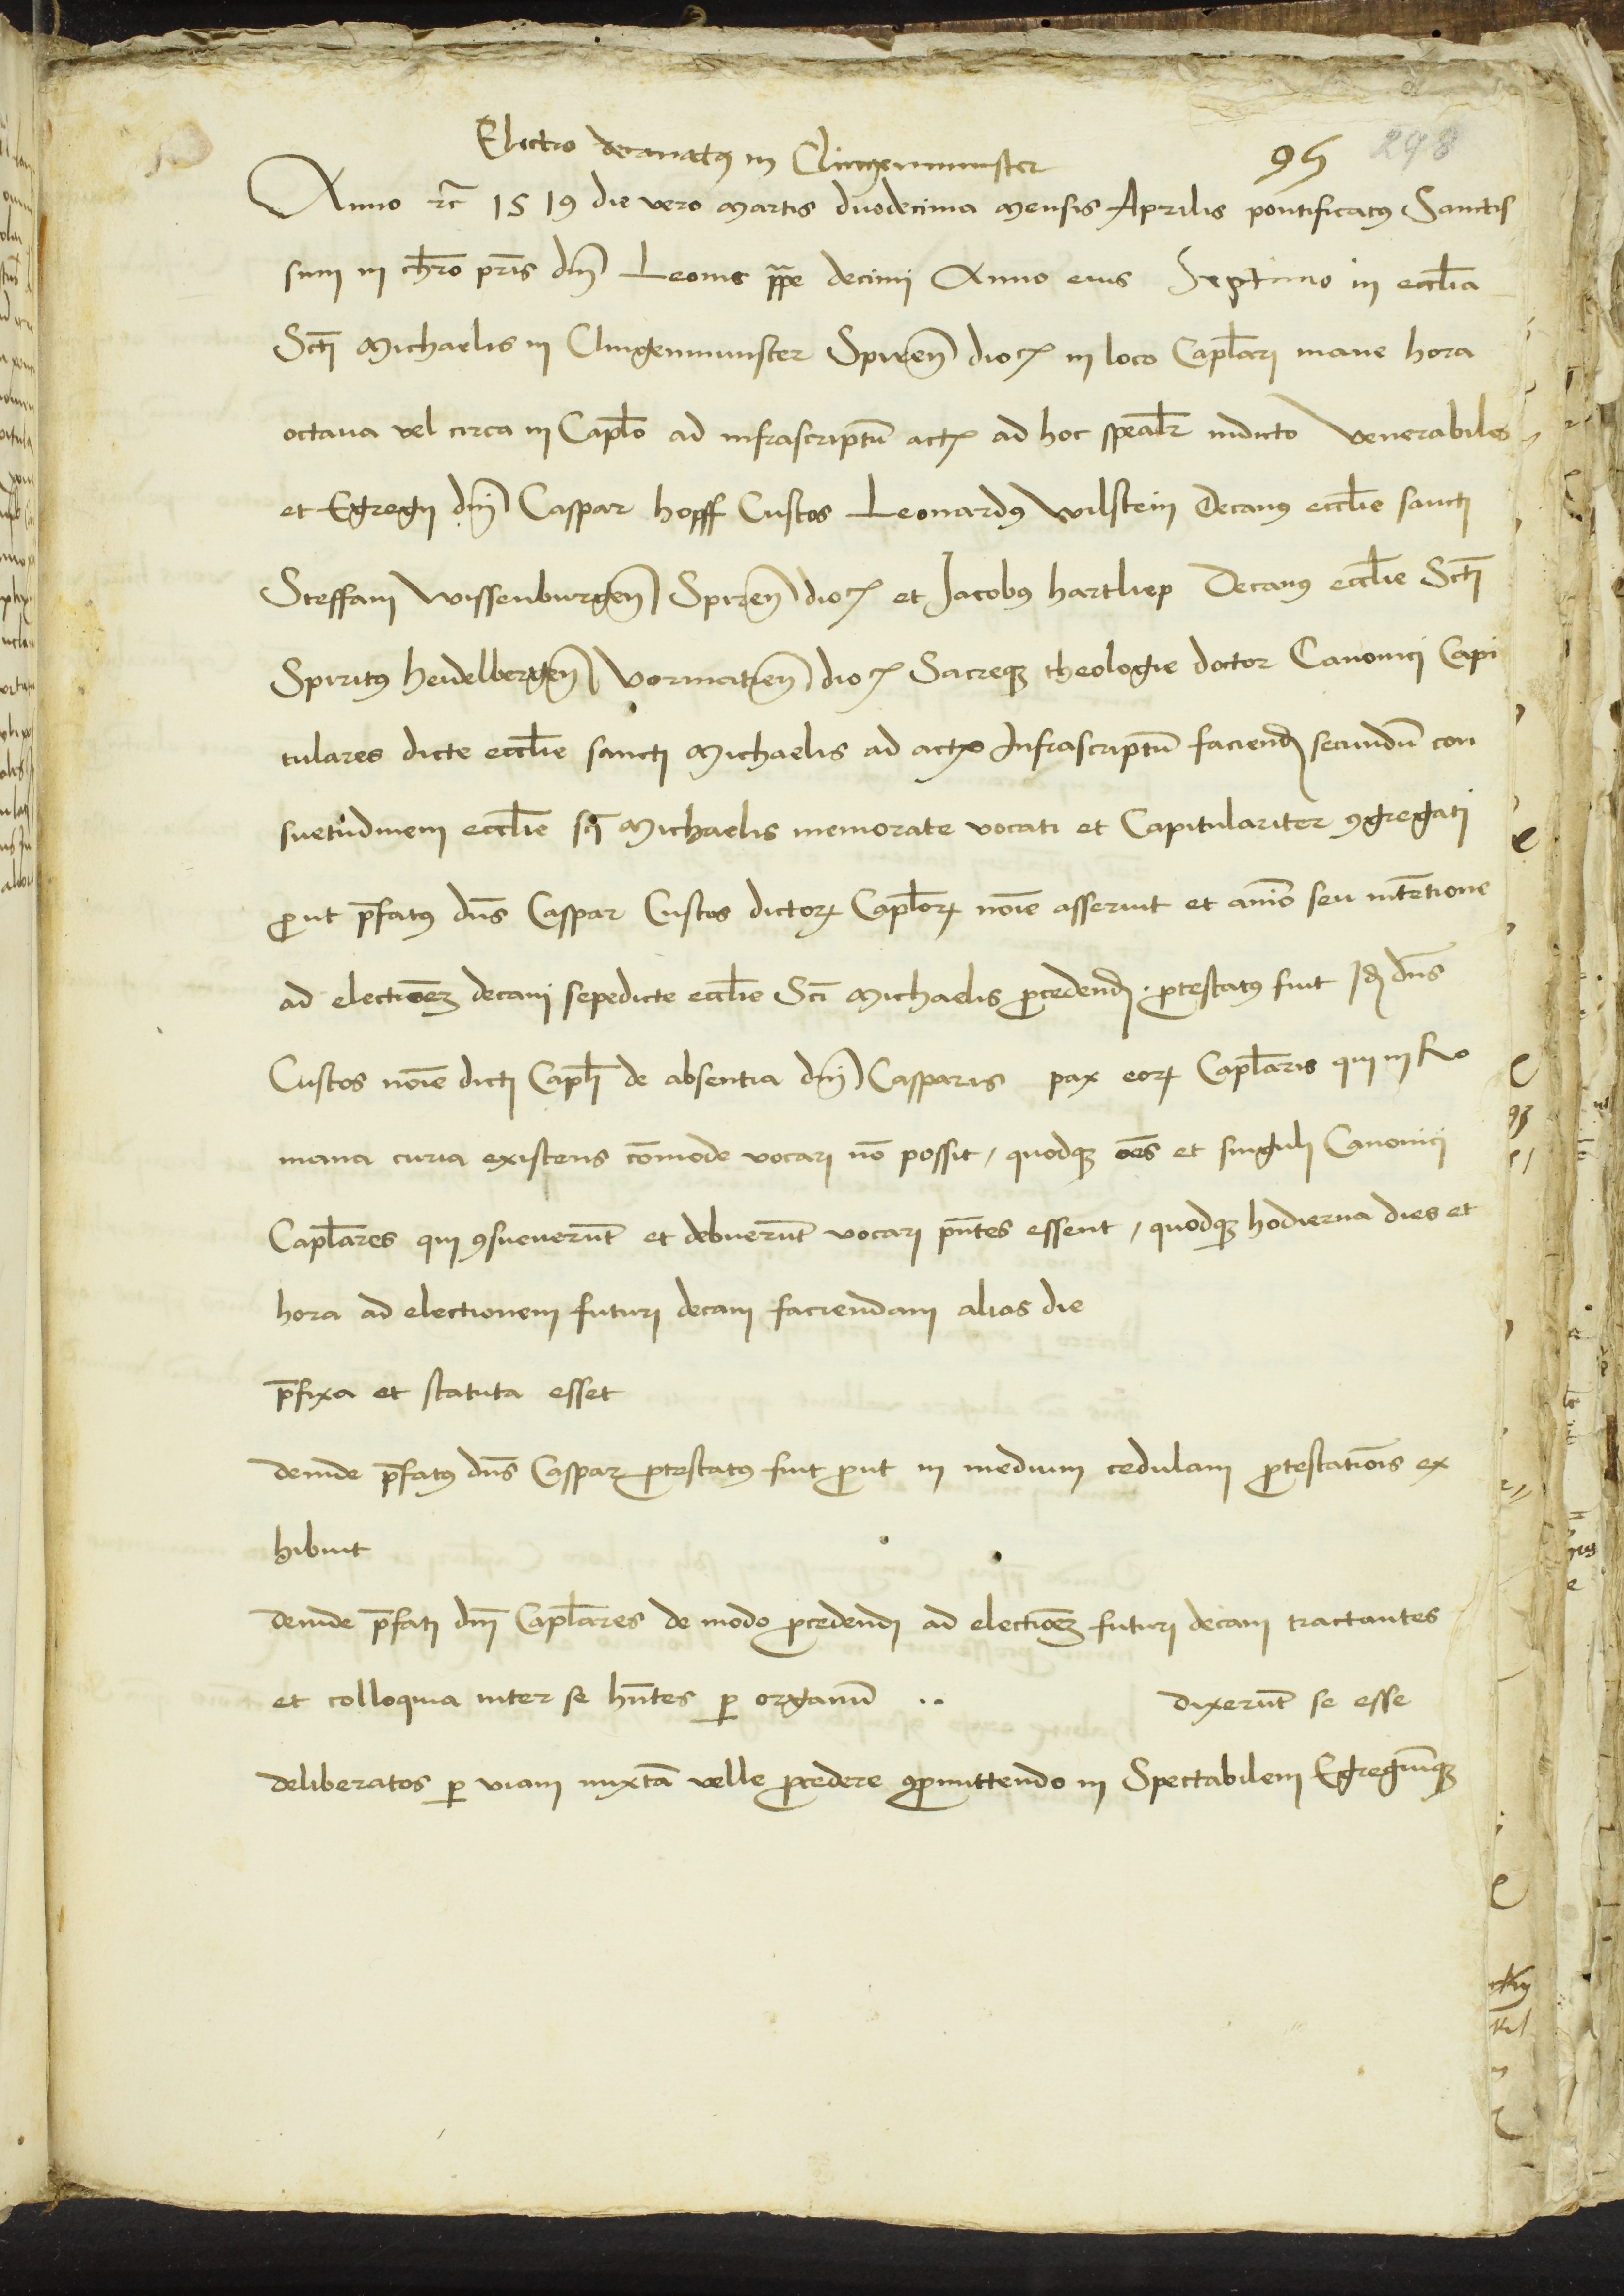 Electio decanatꝰ in Clingenmunster
95 298
Anno rc̄ 1519 die vero Martis duodecima Mensis Aprilis pontificatꝰ Sanctis
simi in chr̄o pr̄is dn̄i Leonis pp̄e decimi Anno eius Septimo in eccl̄ia
Sct̄i Michaelis in Clingenmunster Spiren̄ dioc̄ in loco Capl̄ari mane hora
octaua vel circa in Capl̄o ad infrascriptū actū ad hoc spealr̄ indicto Venerabiles
et Egregij dn̄i Caspar hopff Custos Leonardꝰ Wilstein Decanꝰ eccl̄ie sancti
Steffani Wissenburgen̄ Spiren̄ dioc̄ et Jacobꝰ hartliep Decanꝰ eccl̄ie Sct̄i
Spiritꝰ heidelbergen̄ Vormatien̄ dioc̄ Sacreqꝫ theologie doctor Canonici Capi
tulares dicte eccl̄ie sancti Michaelis ad actū Infrascriptū faciend̄ secundū con
suetudinem eccl̄ie sc̄i Michaelis memorate vocati et Capitulariter ꝯgregati
ꝓut p̄fatꝰ dn̄s Caspar Custos dictoꝝ Capl̄oꝝ noīe asseruit et aīmo seu intētione
ad electioēꝫ decani sepedicte eccl̄ie Sc̄i Michaelis ꝓcedend̄ . ꝓtestatꝰ fuit Id̄ dn̄s
Custos noīe dicti Capl̄i de absentia dn̄i Casparis pax eoꝝ Capl̄aris qui in Ro
mana curia existens cōmode vocari nō possit / quodqꝫ oēs et singuli Canonici
Capl̄ares qui ꝯsueuerūt et debuerūt vocari pn̄tes essent / quodqꝫ hodierna dies et
hora ad electionem futuri decani faciendam alias die
p̄fixa et statuta esset
deinde p̄fatꝰ dn̄s Caspar ꝓtestatꝰ fuit ꝓut in medium cedulam ꝓtestatiōis ex
hibuit
deinde p̄fati dn̄i Capl̄ares de modo ꝓcedendi ad electioēꝫ futuri decani tractantes
et colloquia inter se hn̄tes ꝑ organū .. dixerūt se esse
deliberatos ꝑ viam mixtā velle ꝓcedere ꝯꝓmittendo in Spectabilem Egregiūqꝫ